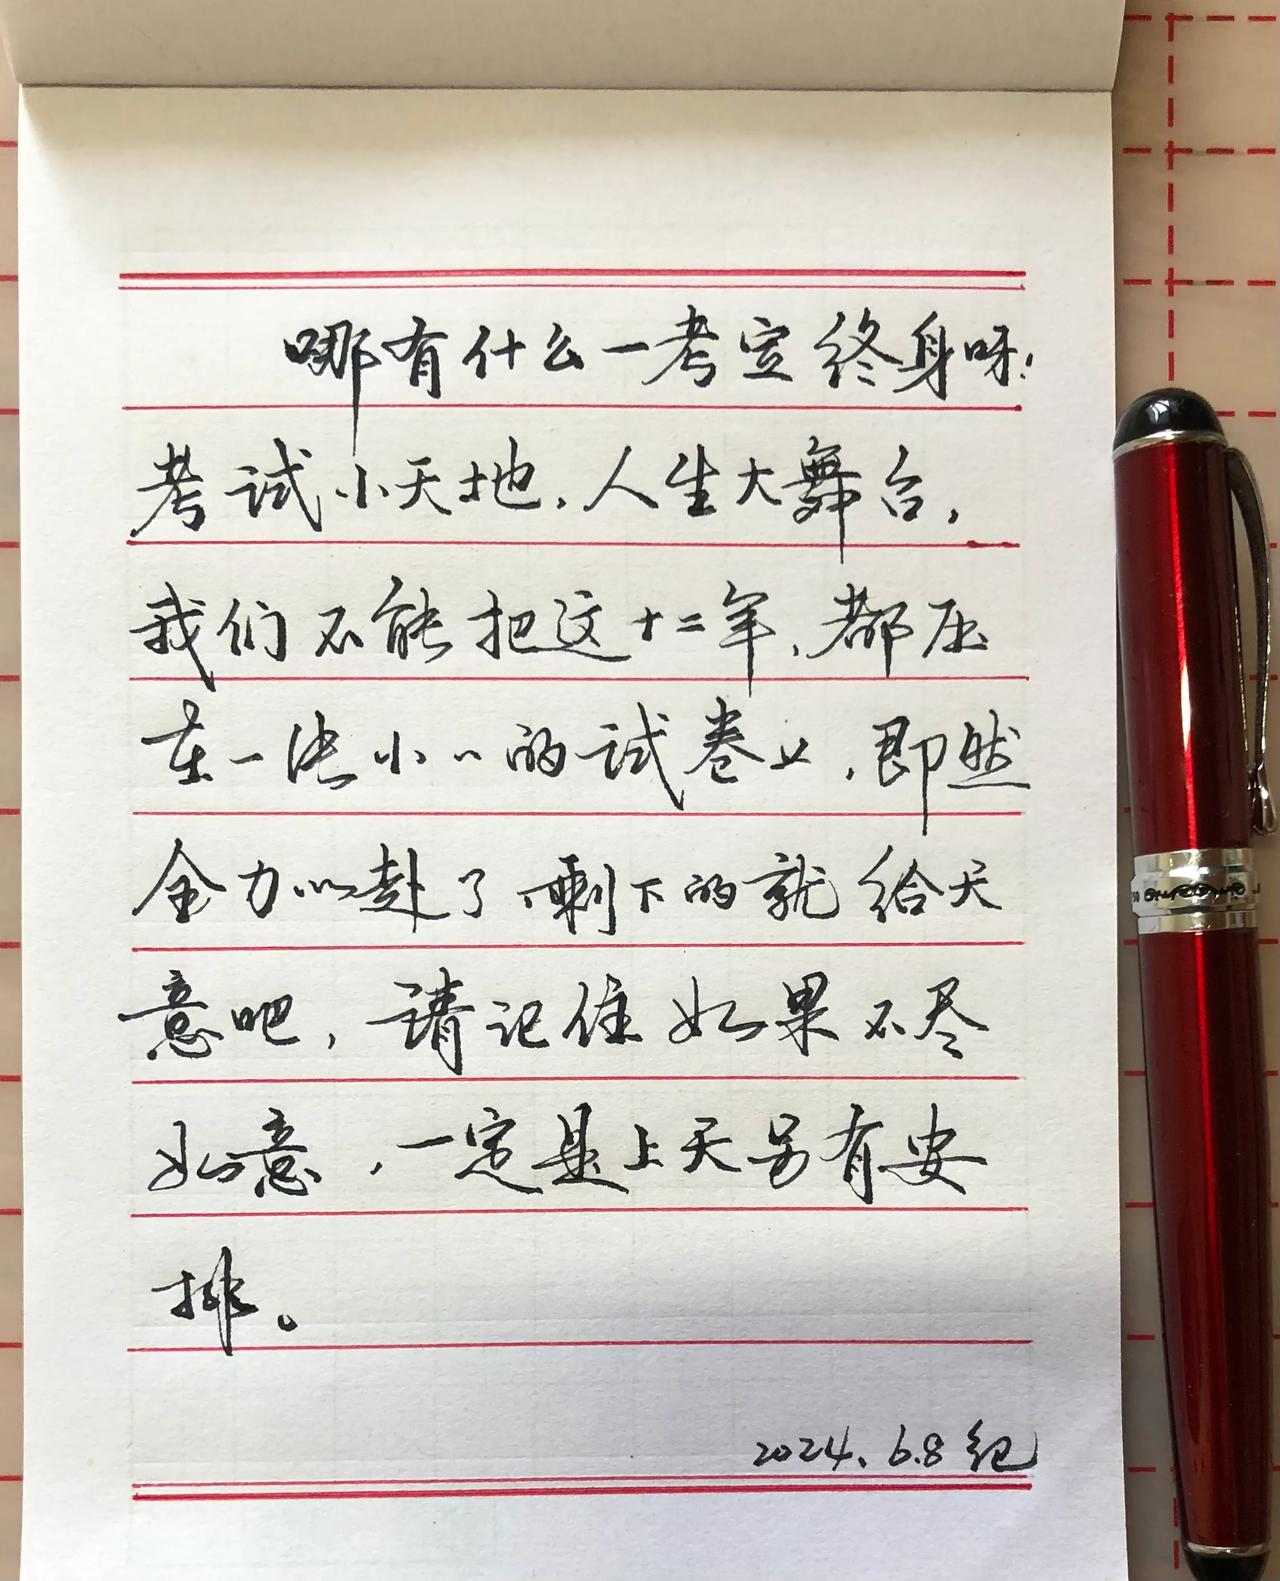 哪有什么一考定终身呀!
考试小天地,人生大舞台,
我们不能把这十二年,都压
在一张小小的试卷上,即然
全力以赴了,剩下的就给天
意吧,请记住如果不尽
如意,一定是上天另有安
排。
2024.6.8 纪